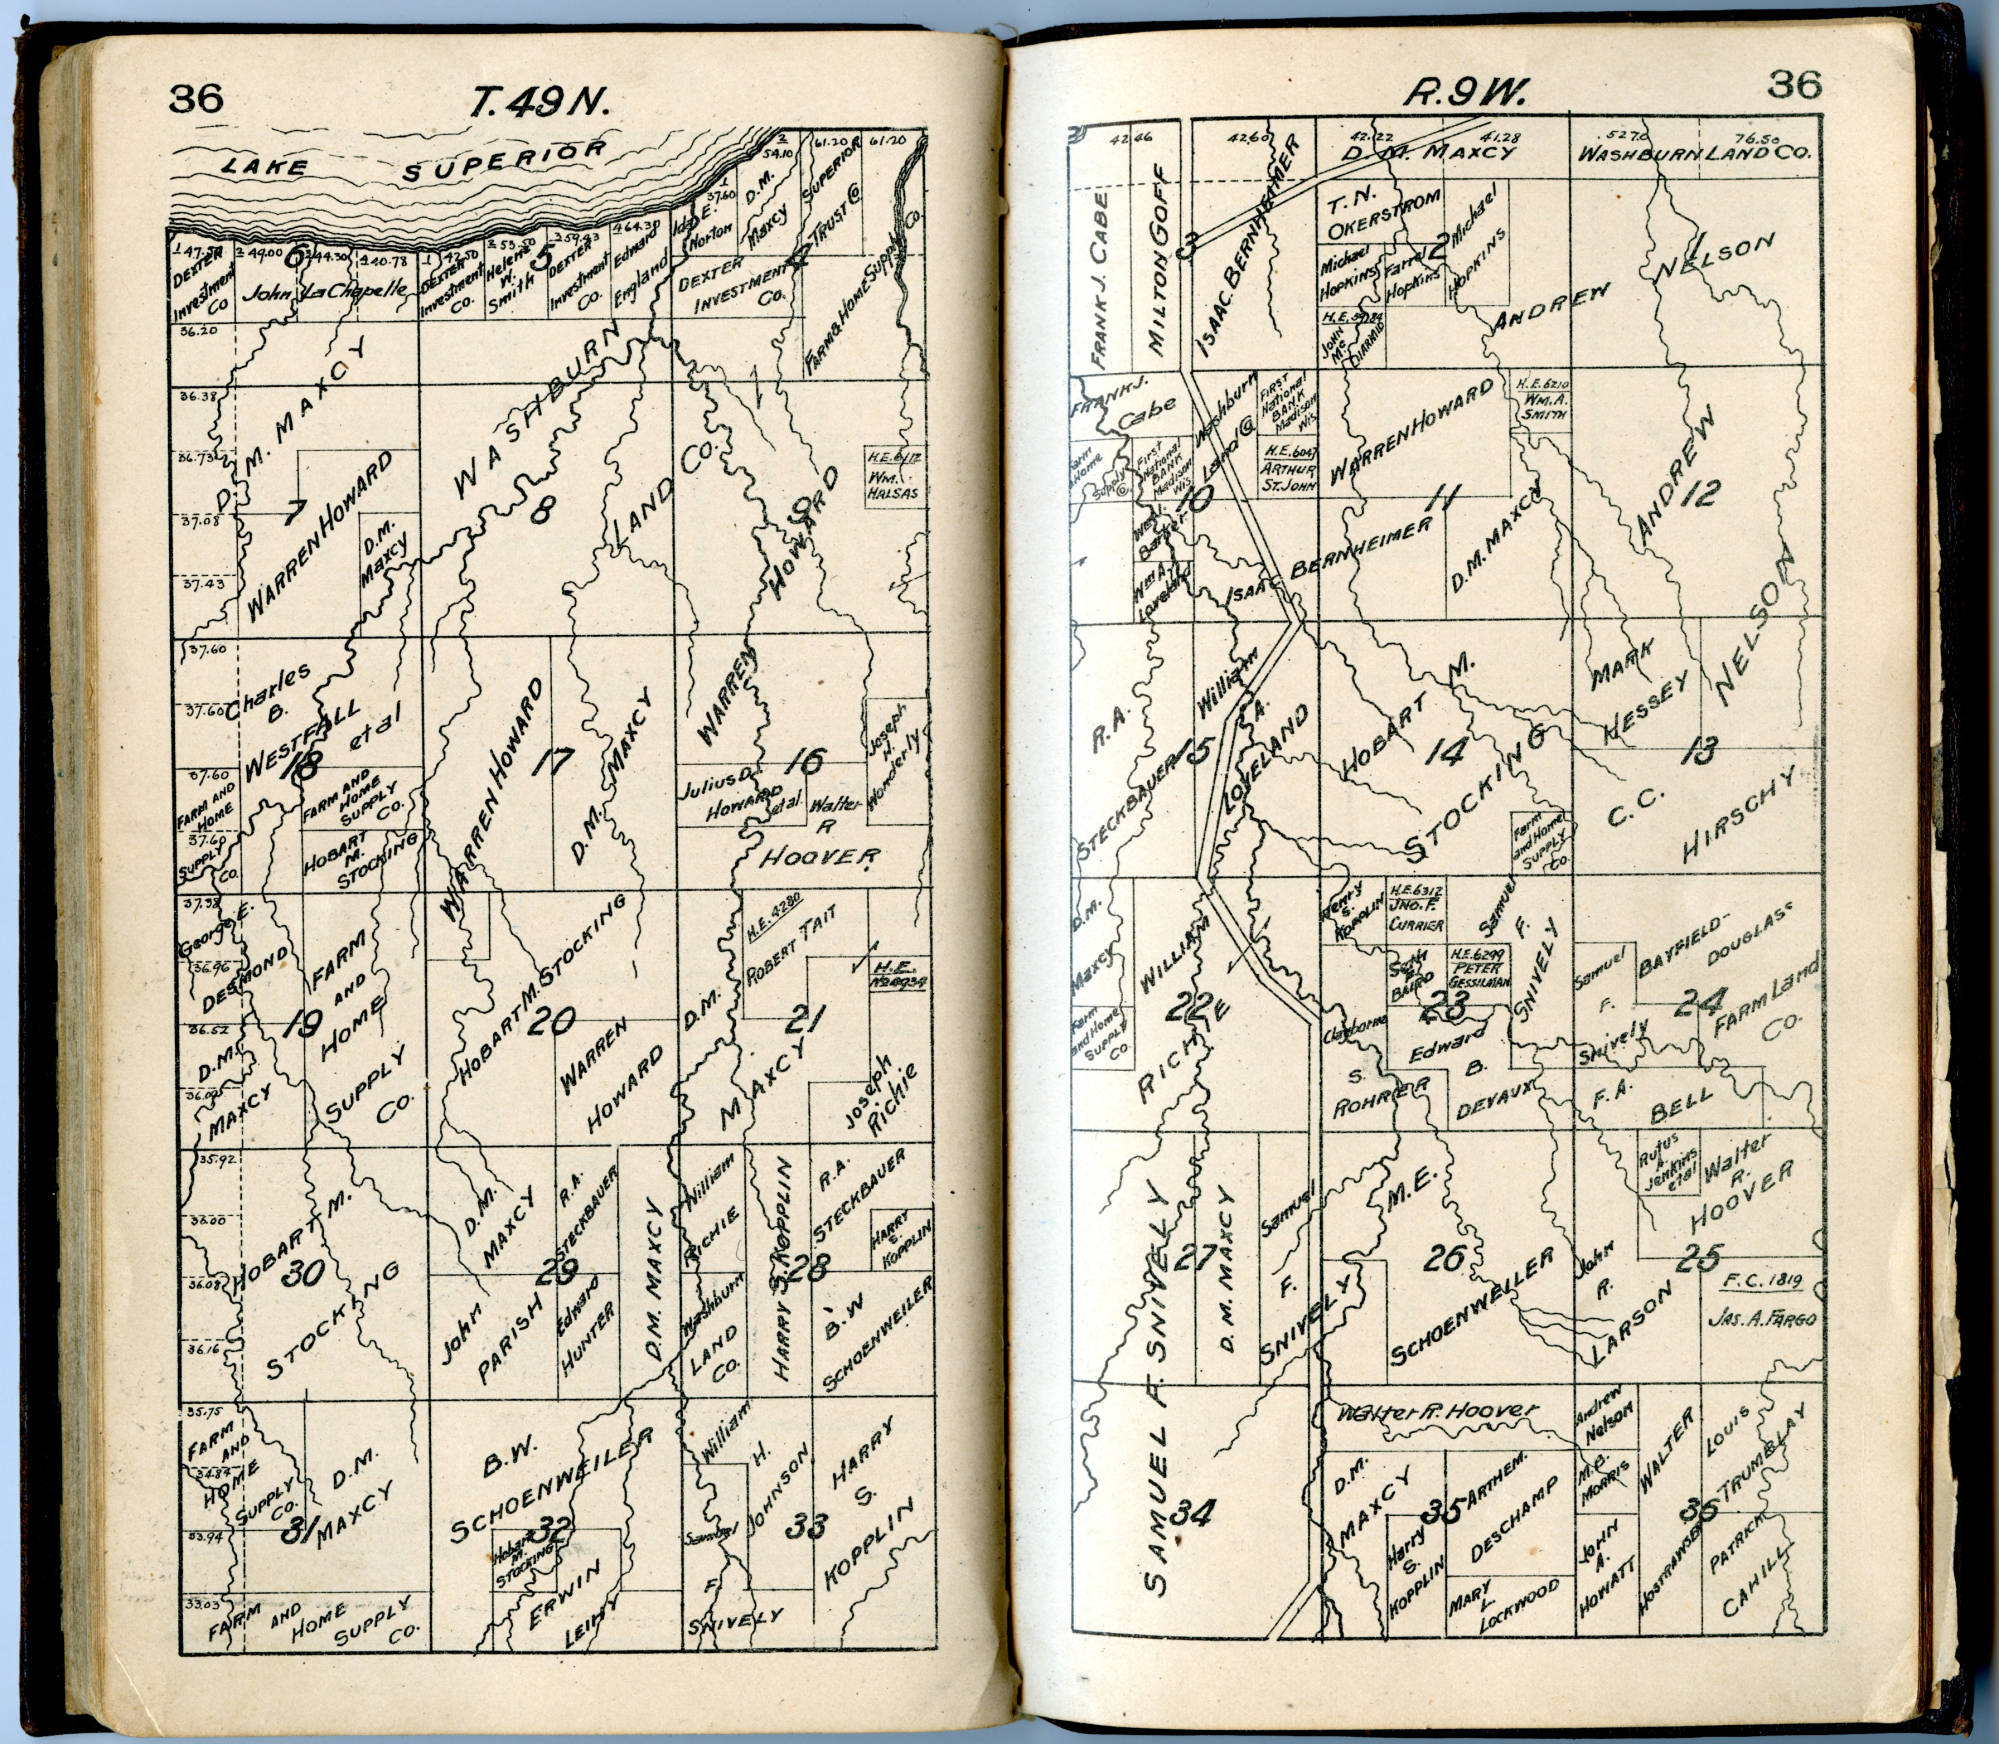 36
T. 49 N.
LAKE SUPERIOR
2
54.10
61.20
61.20
1
37.60
D.M.
Maxcy
SUPERIOR
TRUST Co
Ida E.
Norton
1 47.50
2 49.00
6
3 44.30
4 40.78
1 42.50
2 53.50
5
3 59.43
4 64.38
DEXTER
Investment
Co
John La Chapelle
DEXTER
Investment
Co.
Helena
W.
Smith
DEXTER
Investment
Co.
Edward
England
DEXTER
INVESTMENT
Co.
4
FARM & HOME Supply Co.
36.20
D. M. MAXCY
WASHBURN
LAND
CO.
36.38
36.73
37.08
37.43
7
WARREN HOWARD
D.M.
Maxcy
8
9
H.E. 6112
WM.
HALSAS
WARREN
HOWARD
37.60
37.60
37.60
37.60
Charles
B.
WESTFALL
et al
18
FARM AND
HOME
SUPPLY
Co.
FARM AND
HOME
SUPPLY
Co.
HOBART
M.
STOCKING
WARREN HOWARD
17
D.M. MAXCY
16
Julius D.
HOWARD
et al
Joseph
H.
Wonderly
Walter
R
HOOVER
37.38
36.96
36.52
George E.
DESMOND
19
D.M.
MAXCY
FARM
AND
HOME
SUPPLY
Co.
20
HOBART M. STOCKING
WARREN
HOWARD
H.E. 4280
ROBERT TAIT
H.E.
D.M.
MAXCY
21
Joseph
Richie
35.92
36.00
36.08
36.16
HOBART M.
30
STOCKING
D.M.
MAXCY
R.A.
STECKBAUER
29
John
PARISH
Edward
HUNTER
D.M. MAXCY
William
RICHIE
HARRY S. KOPPLIN
R.A.
STECKBAUER
HARRY
S.
KOPPLIN
28
Washburn
LAND
Co.
B. W
SCHOENWEILER
35.75
34.84
33.94
33.03
FARM
AND
HOME
SUPPLY
Co.
31
D.M.
MAXCY
FARM AND HOME SUPPLY Co.
B.W.
SCHOENWEILER
32
Hobart
M.
STOCKING
ERWIN
LEIHY
William
H.
JOHNSON
Samuel
F.
SNIVELY
33
HARRY
S.
KOPPLIN
R. 9 W.
36
42.46
42.60
42.22
41.28
52.70
76.50
FRANK J. CABE
MILTON GOFF
3
ISAAC BERNHEIMER
D. M. MAXCY
WASHBURN LAND CO.
T. N.
OKERSTROM
Michael
Hopkins
Farrel
Hopkins
2
Michael
HOPKINS
JOHN
Mc
DIARMID
1
ANDREW NELSON
FRANK J.
Cabe
Farm
Home
Supply
Co.
First
National
BANK
Madison
Wis.
Washburn
Land Co
FIRST
National
BANK
Madison
Wis
H.E. 6047
ARTHUR
ST. JOHN
10
Barker
WM A.
Loveland
ISAAC BERNHEIMER
WARREN HOWARD
H.E. 6210
WM. A.
SMITH
11
D.M. MAXCY
12
ANDREW
NELSON
R.A.
STECKBAUER
15
William
A.
LOVELAND
HOBART M.
14
STOCKING
Farm
and Home
SUPPLY
Co.
MARK
HESSEY
13
C.C.
HIRSCHY
D.M.
Maxcy
Farm
and Home
SUPPLY
Co
WILLIAM
22
E
RICH
Henry
S.
KOPPLIN
H.E. 6312
JNO. F.
CURRIER
Samuel
F.
SNIVELY
Seth
E.
BAIRD
H.E. 6299
PETER
GESSILMAN
23
Clayborne
S.
ROHRER
Edward
B.
DEVAUX
Samuel
F.
Snively
BAYFIELD-
DOUGLASS
24
FARM Land
Co.
F. A.
BELL
SAMUEL F. SNIVELY
27
D. M. MAXCY
Samuel
F.
SNIVELY
M.E.
26
SCHOENWEILER
Rufus
A.
Jenkins
et al
Walter
R.
HOOVER
John
R.
LARSON
25
F.C. 1819
JAS. A. FARGO
34
Walter R. Hoover
D.M.
MAXCY
Harry
S.
KOPPLIN
35
ARTHEM.
DESCHAMP
MARY
L
LOCKWOOD
Andrew
Nelson
M.B.
MORRIS
JOHN
A.
HOWATT
WALTER
HOSTRAWSER
36
LOUIS
TRUMBLAY
PATRICK
CAHILL